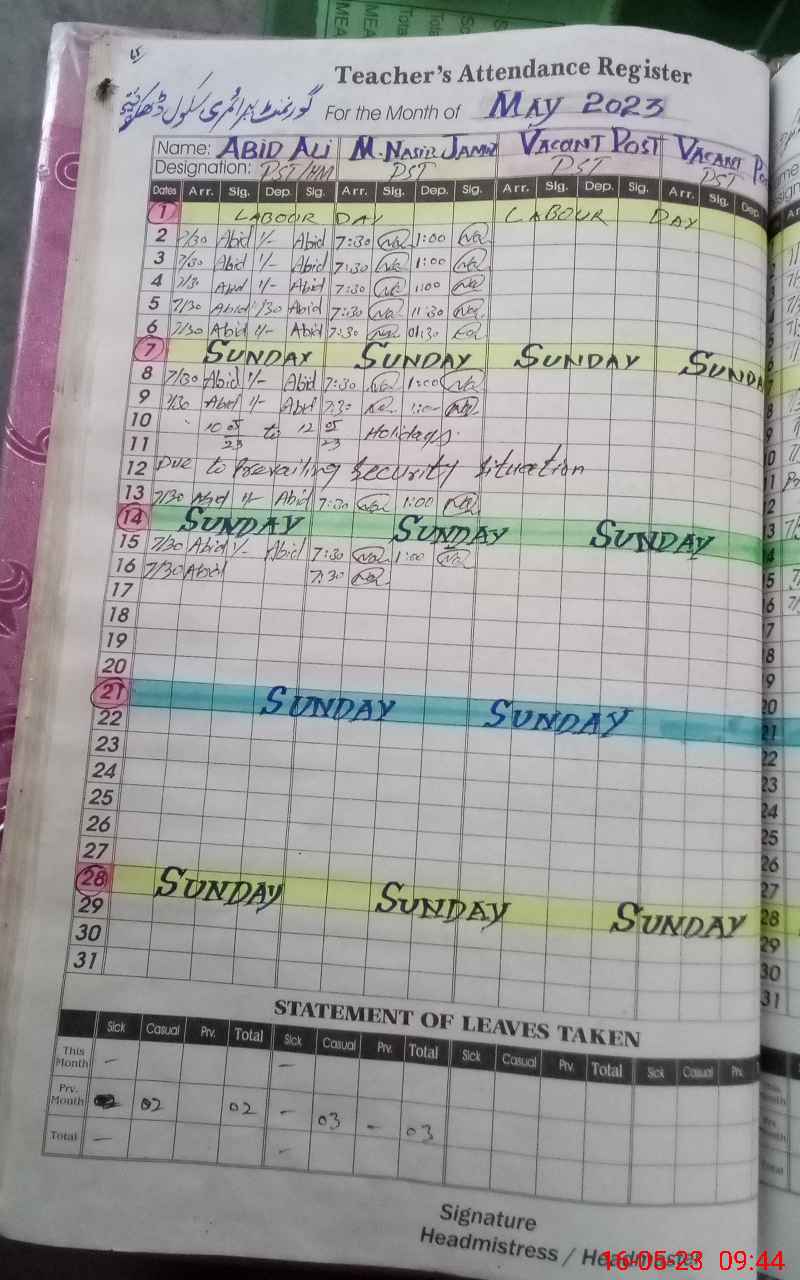 Teacher's Attendance Register
گورنمنٹ پرائمری سکول
For the Month of MAY 2023
Name: ABID ALI M. NASIR JAMAL VACANT POST VACANT
Designation: PST/HM PST PST PST
Dates Arr. Sig. Dep. Sig. Arr. Sig. Dep. Sig. Arr. Sig. Dep. Sig. Arr. Sig. Dep
1 LABOUR DAY LABOUR DAY
2 7/30 Abid 1/- Abid 7:30 1:00
3 7/30 Abid 1/- Abid 7:30 1:00
4 7/30 Abid 1/- Abid 7:30 1:00
5 7/30 Abid Abid 7:30 11:30
6 7/30 Abid 1/- Abid 7:30 01:30
7 SUNDAY SUNDAY SUNDAY SUNDAY
8 7/30 Abid 1/- Abid 7:30 1:00
9 7/30 Abid 1/- Abid 7:30 1:00
10 10 05/23 to 12 05/23 Holidays.
11
12 Due to Prevailing Security Situation
13 7/30 Abid 1/- Abid 7:30 1:00
14 SUNDAY SUNDAY SUNDAY
15 7/30 Abid 1/- Abid 7:30 1:00
16 7/30 Abid 7:30
17
18
19
20
21 SUNDAY SUNDAY
22
23
24
25
26
27
28 SUNDAY SUNDAY SUNDAY
29
30
31
STATEMENT OF LEAVES TAKEN
Sick Casual Prv. Total Sick Casual Prv. Total Sick Casual Prv. Total Sick Casual Prv.
This Month - -
Prv. Month 02 02 - 03 - 03
Total - -
Signature
Headmistress / Headmaster
16-05-23 09:44